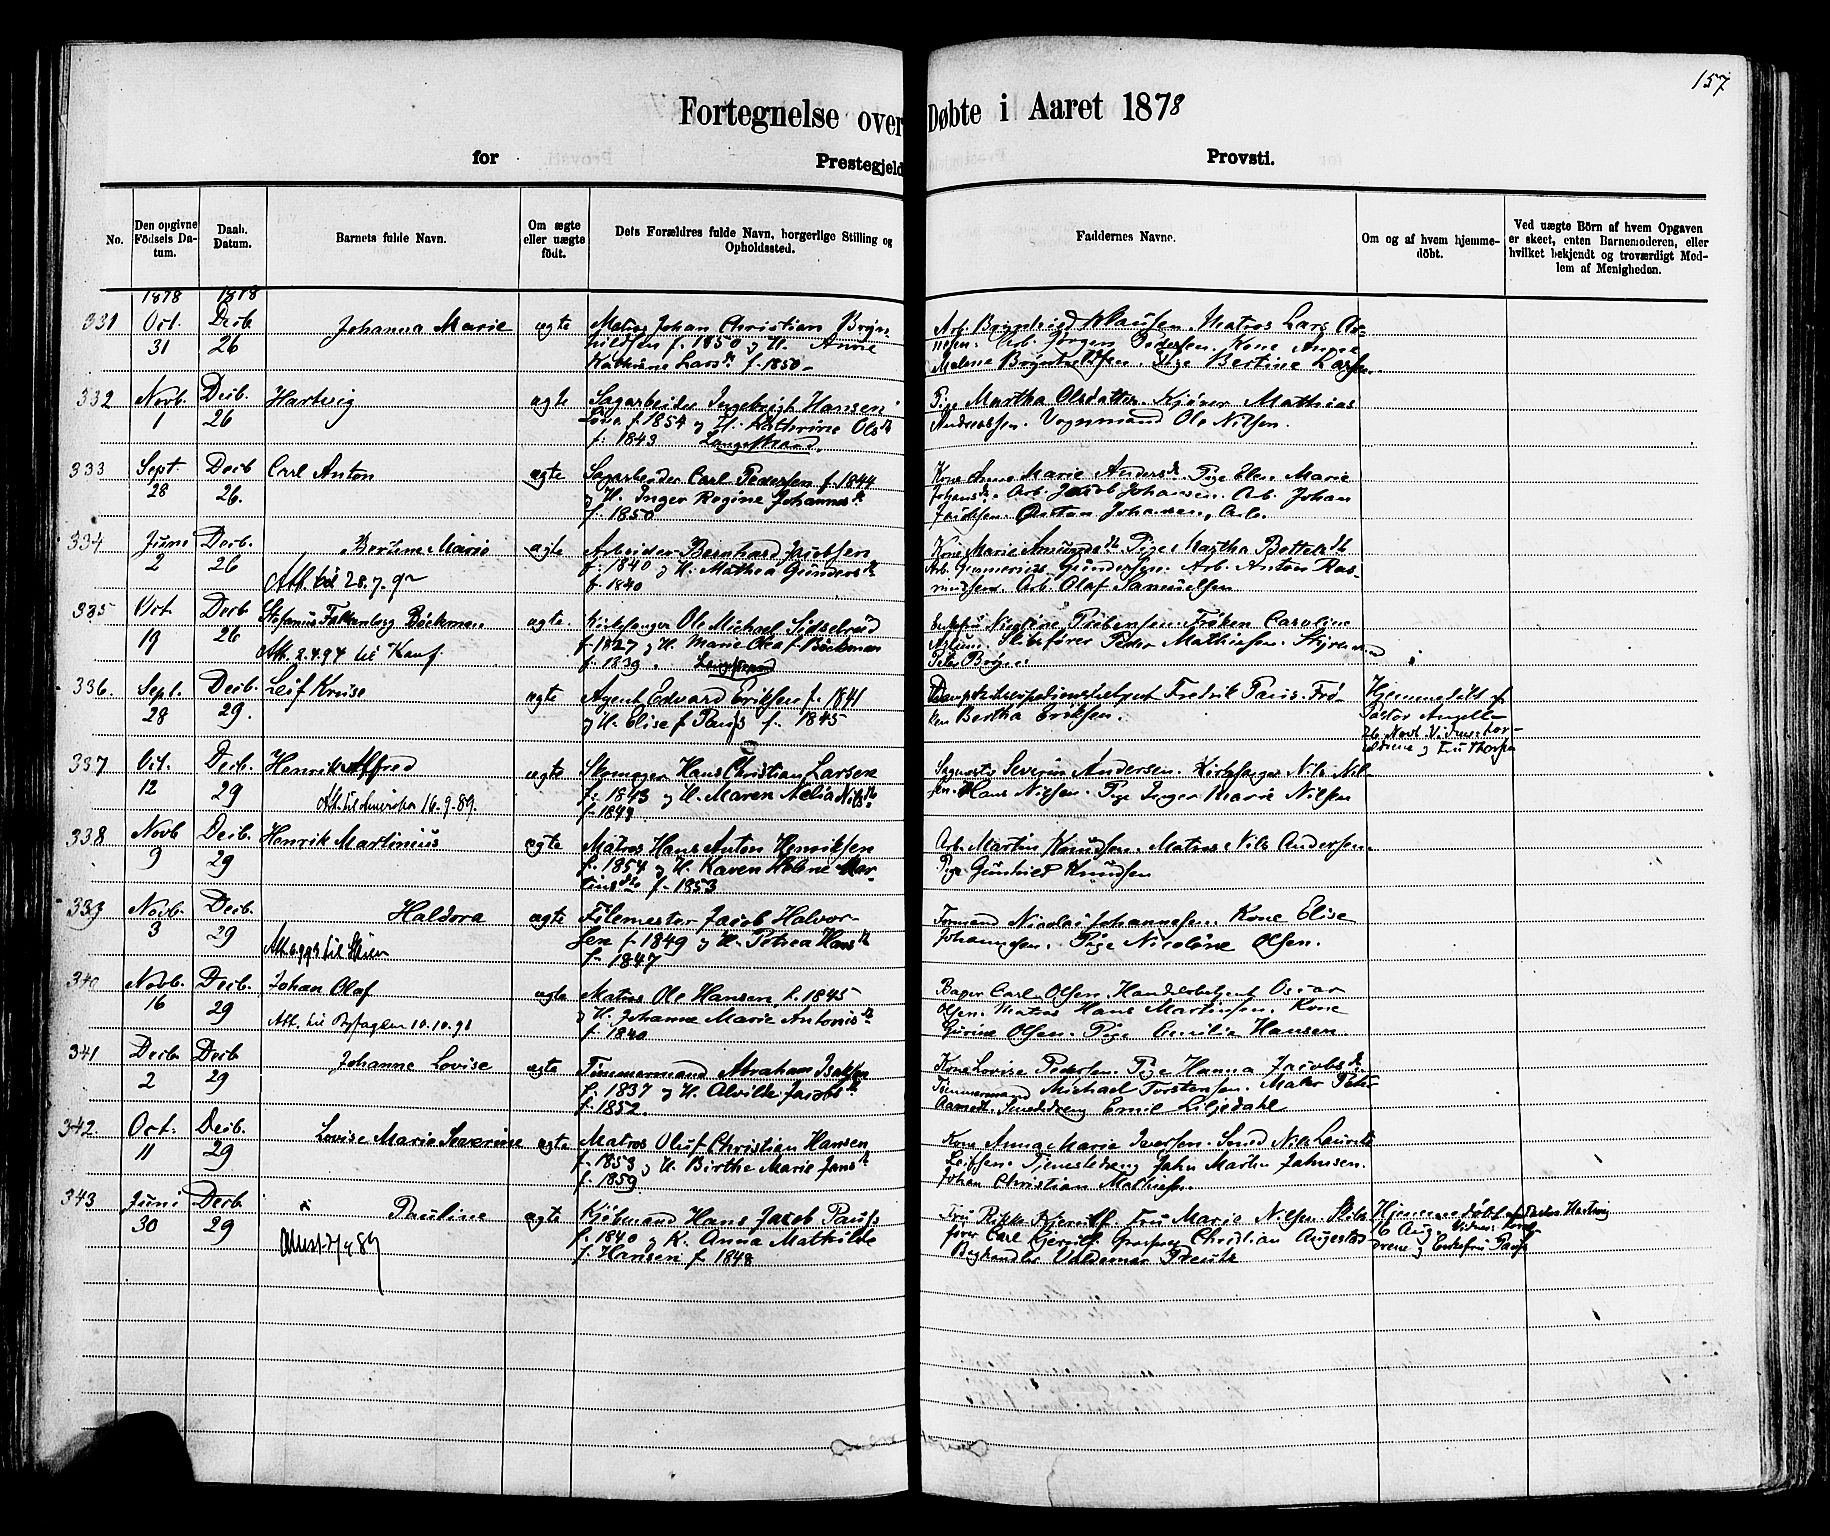 157
Fortegnelse over Døbte i Aaret 1878
for Prestegjeld Provsti.
No.
Den opgivne Fødsels Datum.
Daab. Datum.
Barnets fulde Navn.
Om ægte eller uægte født.
Dets Forældres fulde Navn, borgerlige Stilling og Opholdssted.
Faddernes Navne.
Om og af hvem hjemmedöbt.
Ved uægte Börn af hvem Opgaven er skeet, enten Barnemoderen, eller hvilket bekjendt og troværdigt Medlem af Menigheden.
1878 1878
331 Oct. 31 Decb 26 Johanna Marie ægte
Matros Johan Christian Bryn-
hildsen f. 1850 og H. Anne
Kathrine Larsd. f. 1850
Arb. Brynhild Klausen. Matros Lars
Arb. Jørgen Pedersen. Kone
Malena Brynhildsen. Pige Bertine Larsen.
332 Novb. 1 Decb. 26 Hartvig ægte
Sagarbeider Ingebrigt Hansen
f. 1854 og H. Kathrine Olsd.
f. 1843 Langestrand.
Pige Martha Olsdatter. Kjører Mathias
Andreassen. Vognmand Ole Nilsen.
333 Sept. 28 Decb 26. Carl Anton ægte
Sagarbeider Carl Pedersen f. 1844
og H. Inger Regine Johannesd.
f. 1850
Kone Anne Marie Andersd. Pige Elen Marie
Johansd. Arb. Jacob Johansen. Arb. Johan
Johansen, Arb.
334 Juni 2 Decb. 26 Bertine Marie ægte
Att. til 28.7.92
Arbeider Bernhard Jacobsen
f. 1840 og H. Mathea Gundersd.
f. 1840
Kone Marie Amundsd. Pige Martha
Arb. Gundersen. Arb. Anton Ras-
mussen. Arb. Olaf Samuelsen
335 Oct. 19 Decb 26 Stefanus Falkenberg Bøckman ægte
Att. 2.4.94 til Konf
Kirkesanger Ole Michael Sidselrud
f. 1827 og H. Marie Olea f. Bøckman
f. 1839. Langestrand
Nicoline Frøken Caroline
Skibsfører Peder Mathiesen. Styrmand
Peter
336. Sept. 28 Decb. 29. Leif Kruse ægte
Agent Edvard Eriksen f. 1841
og H. Elise f. Paus f. 1845
Fredrik Paus. Frø-
ken Bertha Eriksen.
Hjemmedøbt af
Pastor Angell
26 Novb. Vidner: For-
ældrene og Fru Thorsen
337 Oct. 12 Decb. 29 Henrik Alfred ægte
Att. til Amerika 16.9.89.
Skomager Hans Christian Larsen
f. 1843 og H. Maren Nilsd.
f. 1843
Severin Andersen. Kirkesanger Nils Nil-
sen. Hans Nielsen. Pige Inger Marie Nilsen
338 Novb 9 Decb. 29 Henrik Martinius ægte
Matros Hans Anton Henriksen
f. 1854 og H. Karen Helene Mar-
tinsd. f. 1853
Arb. Martin Knudsen. Matros Nils Andersen.
Pige Gunhild Knudsen
339 Novb. 3 Decb. 29 Haldora ægte
til Skien
Filemester Jacob Halvor-
sen f. 1849 og H. Petrea Hansd.
f. 1847
Formand Nicolai Johannesen. Kone Elise
Johannesen. Pige Nicoline Olsen.
340 Novb. 16 Decb. 29 Johan Olaf ægte
Att. til 10.10.91
Matros Ole Hansen f. 1845
og H. Johanne Marie Antonisd.
f. 1840
Bager Carl Olsen. Handelsbetjent Oscar
Olsen. Matros Hans Martinsen. Kone
Gurine Olsen. Pige Emilie Hansen
341 Decb. 2 Decb 29 Johanne Lovise ægte
Tømmermand Abraham Isaksen
f. 1837 og H. Alvilde Jacobsd.
f. 1852.
Kone Lovise Pedersen. Pige Hanna Jacobsd.
Tømmermand Michael Torstensen. Maler
Smeddreng Emil Liljedahl
342. Oct. 11 Decb. 29 Lovise Marie Severine ægte
Matros Oluf Christian Hansen
f. 1853 og H. Birthe Marie Jansd.
f. 1859.
Kone Anna Marie Iversen. Smed Nils
Leifsen. Tjenestedreng John Martin Johnsen.
Johan Christian Mathisen.
343 Juni 30 Decb. 29 Pauline ægte
Kjøbmand Hans Jacob Paus
f. 1840 og K. Anna Mathilde
f. Hansen f. 1848
Fru Rikke Fru Marie Nilsen. Skibs-
fører Carl Christian Augestad
Boghandler Valdemar
Hjemmedøbt af Pastor Hartvig
16 Aug. Vidner: Foræl-
drene og Enkefru Paus